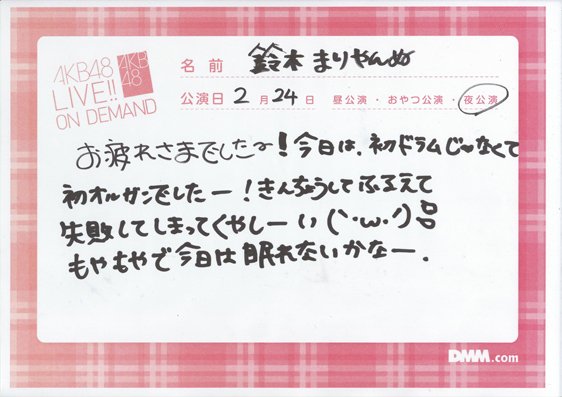 AKB48
LIVE!!
ON DEMAND
AKB
48
名前 鈴木まりやんぬ
公演日 2月24日 昼公演・おやつ公演・夜公演
お疲れさまでした〜!今日は、初ドラムじゃなくて
初オルガンでしたー!きんちょうしてふるえて
失敗してしまってくやしーい(`･ω･´)
もやもやで今日は眠れないかなー.
DMM.com